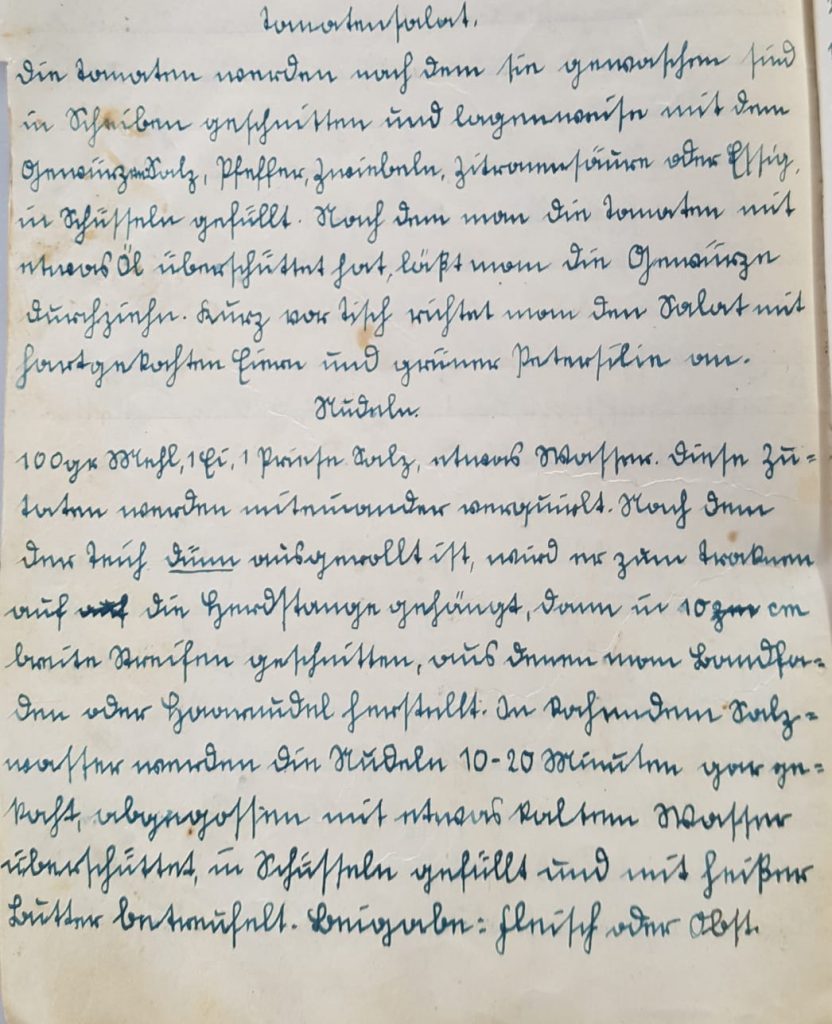 Tomatensalat.
Die Tomaten werden nach dem sie gewaschen sind
in Scheiben geschnitten und lagenweise mit dem
Gewürzen Salz, Pfeffer, Zwiebeln, Zitronensäure oder Essig,
in Schüsseln gefüllt. Nach dem man die Tomaten mit
etwas Öl überschüttet hat, läßt man die Gewürze
durchziehn. Kurz vor Tisch richtet man den Salat mit
hartgekochten Eiern und grüner Petersilie an.
Nudeln.
100gr Mehl, 1 Ei, 1 Priese Salz, etwas Wasser. Diese Zu-
taten werden miteinander verquirlt. Nach dem
der Teich dünn ausgerollt ist, wird er zum Trocknen
auf auf die Herdstange gehängt, dann in 10 cm
breite Streifen geschnitten, aus denen man Bandfa-
den oder Haarnudel herstellt. In kochendem Salz-
wasser werden die Nudeln 10-20 Minuten gar ge-
kocht, abgegossen mit etwas kaltem Wasser
überschüttet, in Schüsseln gefüllt und mit heißer
Butter betreufelt. Beigabe: Fleisch oder Obst.